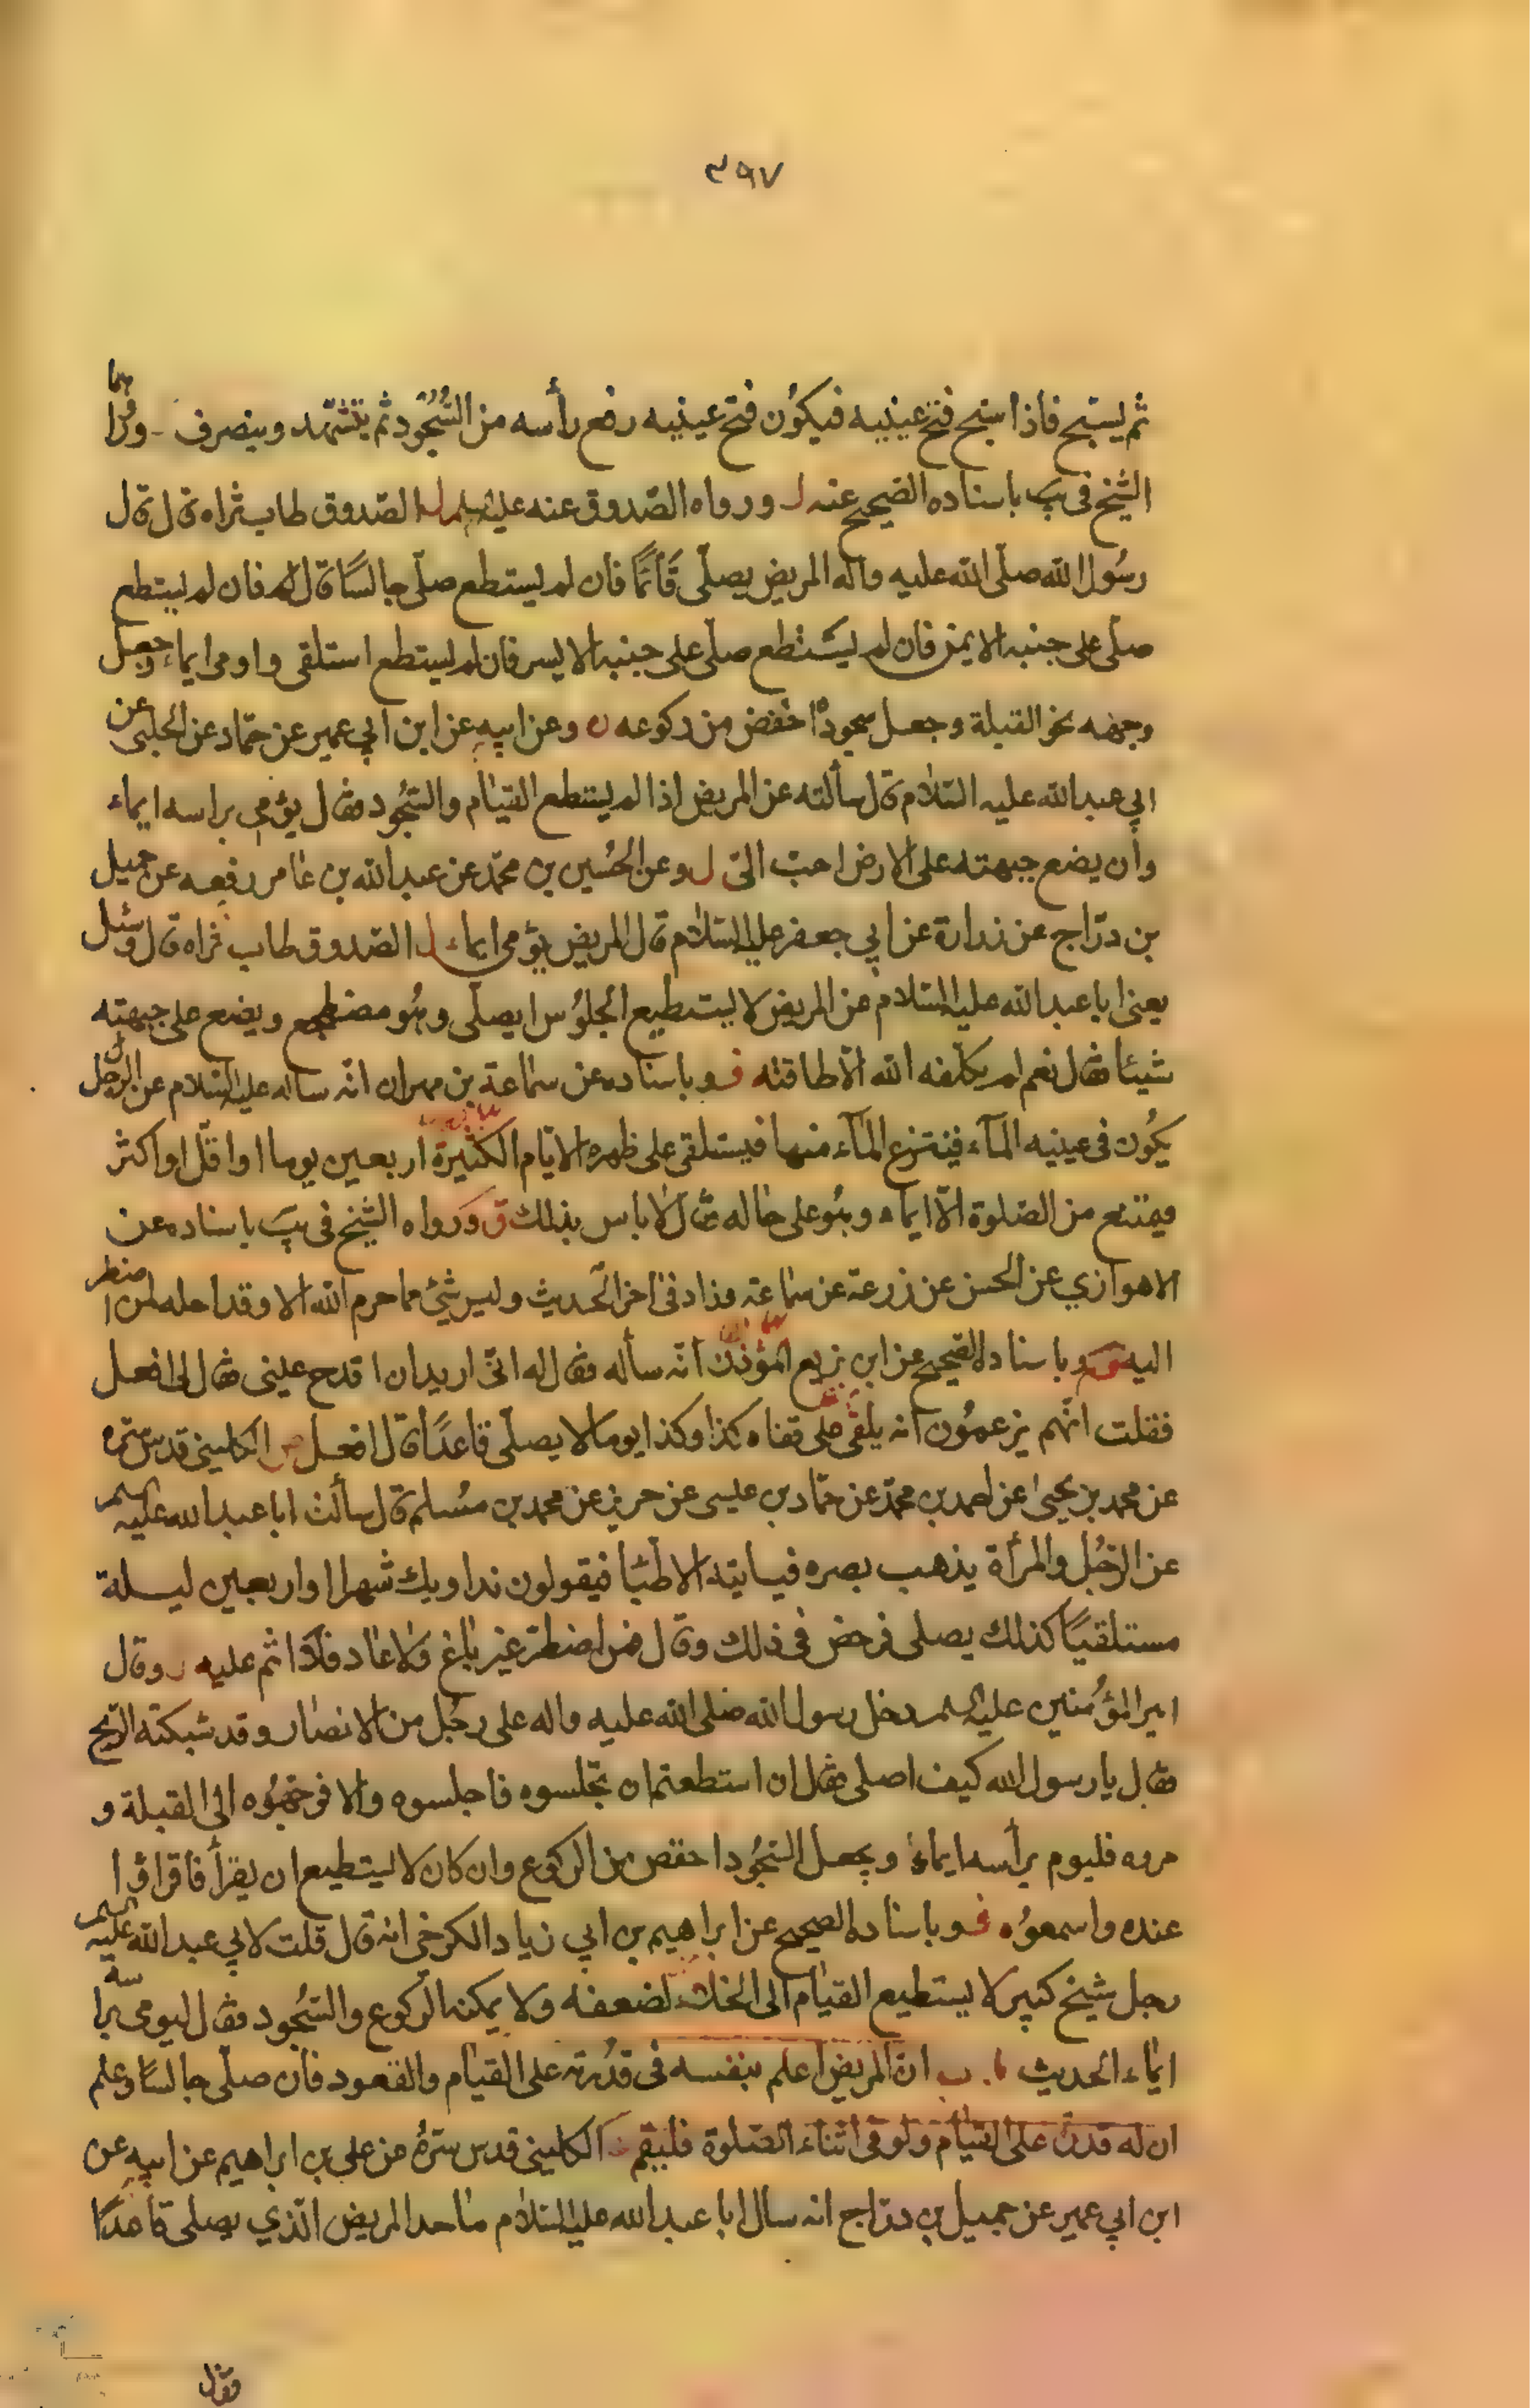 ٣٩٧
ثم يسبّح فاذا سبّح فتح عينيه فيكون فتح عينيه رفع رأسه من السُّجُود ثم يتشهّد وينصرف
الشيخ في يب باسناده الصّحيح عنه ورواه الصّدوق عنه عليه السلم الصّدوق طاب ثراه قال قال
رسُول الله صلّى الله عليه واله المريض يصلّى قَائمًا فان لم يستطع صلّى جالسًا فان لم يستطع
صلّى على جنبه الايمن فان لم يستطع صلّى على جنبه الايسر فان لم يستطع استلقى واومى ايماء وجعل
وجهه نحو القبلة وجعل سجوده اخفض من ركوعه وعن ابيه عن ابن ابي عمير عن حمّاد عن الحلبى عن
ابي عبد الله عليه السّلام قال سألته عن المريض اذا لم يستطع القيام والسّجُود فقال يؤمى براسه ايماء
وأن يضع جبهته على الارض احبّ الىّ وعن الحُسين بن محمّد عن عبد الله بن عامر رفعه عن جميل
بن درّاج عن زرارة عن ابي جعفر عليه السّلام قال المريض يؤمى ايماء الصّدوق طاب ثراه قال وسئل
يعنى ابا عبد الله عليه السّلام عن المريض لا يستطيع الجلوُس ايصلّى وهُو مضطجع ويضع على جبهته
شيئا فقال نعم لم يكلّفه الله الّا طاقته وباسناده عن سماعة بن مهران انّه ساله عليه السّلام عن الرّجل
يكُون في عينيه المآء فينتزع المآء منها فيستلقى على ظهره الايّام الكثيرة اربعين يوما او اقلّ او اكثر
فيمتنع من الصّلوة الّا ايماء وهُو على حاله فقال لا باس بذلك ورواه الشّيخ في يب باسناده عن
الاهوازي عن الحسن عن زرعة عن سماعة وزاد في اخر الحديث وليس شئ مما حرم الله الا وقد احله لمن اضطر
اليه وباسناده الصّحيح عن ابن بزيع المؤذن انّه سأله فقال له انّى اريد ان اقدح عينى فقال لى افعل
فقلت انّهم يزعمُون انه يلقى على قفاه كذا وكذا يوما لا يصلّى قاعدًا قال افعل الكلينى قدس سرّه
عن محمد بن يحيى عن احمد بن محمّد عن حمّاد بن عيسى عن حريز عن محمد بن مسُلم قال سألت ابا عبد الله عليه السلم
عن الرّجُل والمرأة يذهب بصره فياتيه الاطبّا فيقولون نداويك شهرا او اربعين ليلة
مستلقيًا كذلك يصلى فرخص في ذلك وقال فمن اضطرّ غير باغ ولا عاد فلا اثم عليه وقال
امير المؤُمنين عليه السلم دخل رسول الله صلى الله عليه واله على رجُل من الانصار وقد شبكته الرّيح
فقال يا رسول الله كيف اصلى فقال ان استطعتم ان تجلسوه فاجلسوه والا فوجّهُوه الى القبلة و
مروه فليوم برأسه ايماء ويجعل السّجُود اخفض من الركوع وان كان لا يستطيع ان يقرأ فاقراؤا
عنده واسمعوُه وباسناده الصحيح عن ابراهيم بن ابي زياد الكرخى انه قال قلت لابي عبد الله عليه السلم
رجل شيخ كبير لا يستطيع القيام الى الخلاء لضعفه ولا يمكنه الرّكوع والسّجُود فقال ليومى براسه
ايماء الحديث ب انّ المريض اعلم بنفسه في قدُرته على القيام والقعود فان صلّى جالسًا وعلم
ان له قدرة على القيام ولو في اثناء الصّلوة فليقم الكلينى قدس سرّهُ عن على بن ابراهيم عن ابيه عن
ابن ابي عمير عن جميل بن درّاج انه سال ابا عبد الله عليه السّلام ما حد المريض الّذي يصلى قاعدًا
فقال